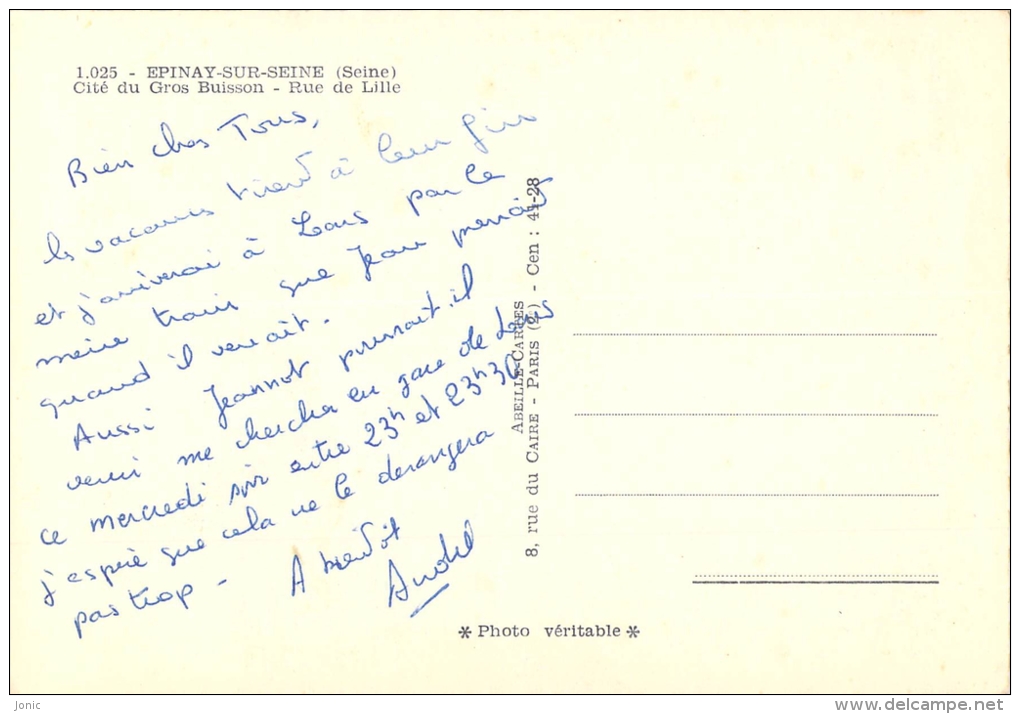 1.025 - EPINAY-SUR-SEINE (Seine)
Cité du Gros Buisson - Rue de Lille
Bien chers Tous,
les vacances tirent à leur fin
et j'arriverai à Lens par le
même train que Jean prenait
quand il venait.
Aussi Jeannot pourrait-il
venir me chercher en gare de Lens
ce mercredi soir entre 23h et 23h30
j'espère que cela ne le derangera
pas trop - A bientôt
ABEILLE-CARTES
8, rue du CAIRE - PARIS (2e) - Cen : 41-28
* Photo véritable *
Jonic
www.delcampe.net